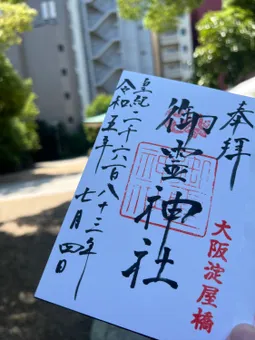 奉拝
御霊神社
大阪淀屋橋
皇紀二千六百八十三年
令和五年
七月四日